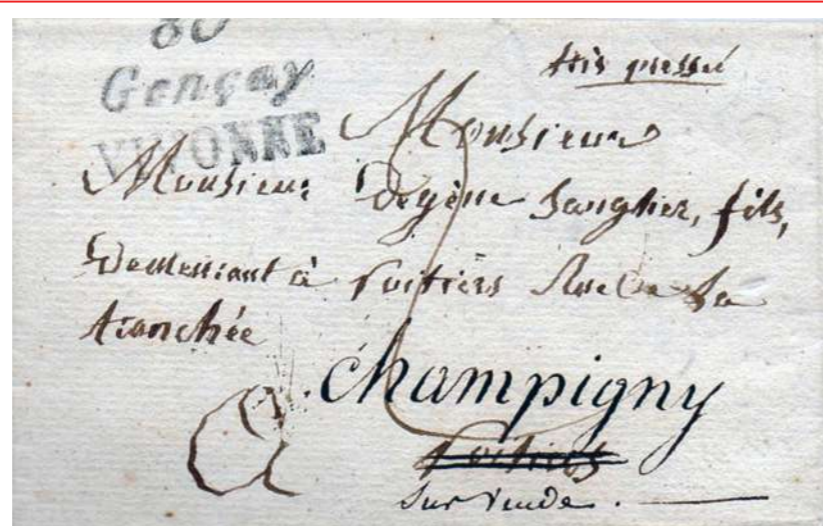 80
Gençay
VIVONNE
très pressé
Monsieur
Monsieur Degène Sanglier, fils,
Demeurant à Poitiers Rue de la
tranchée
Champigny
Poitiers
Sur Vende.